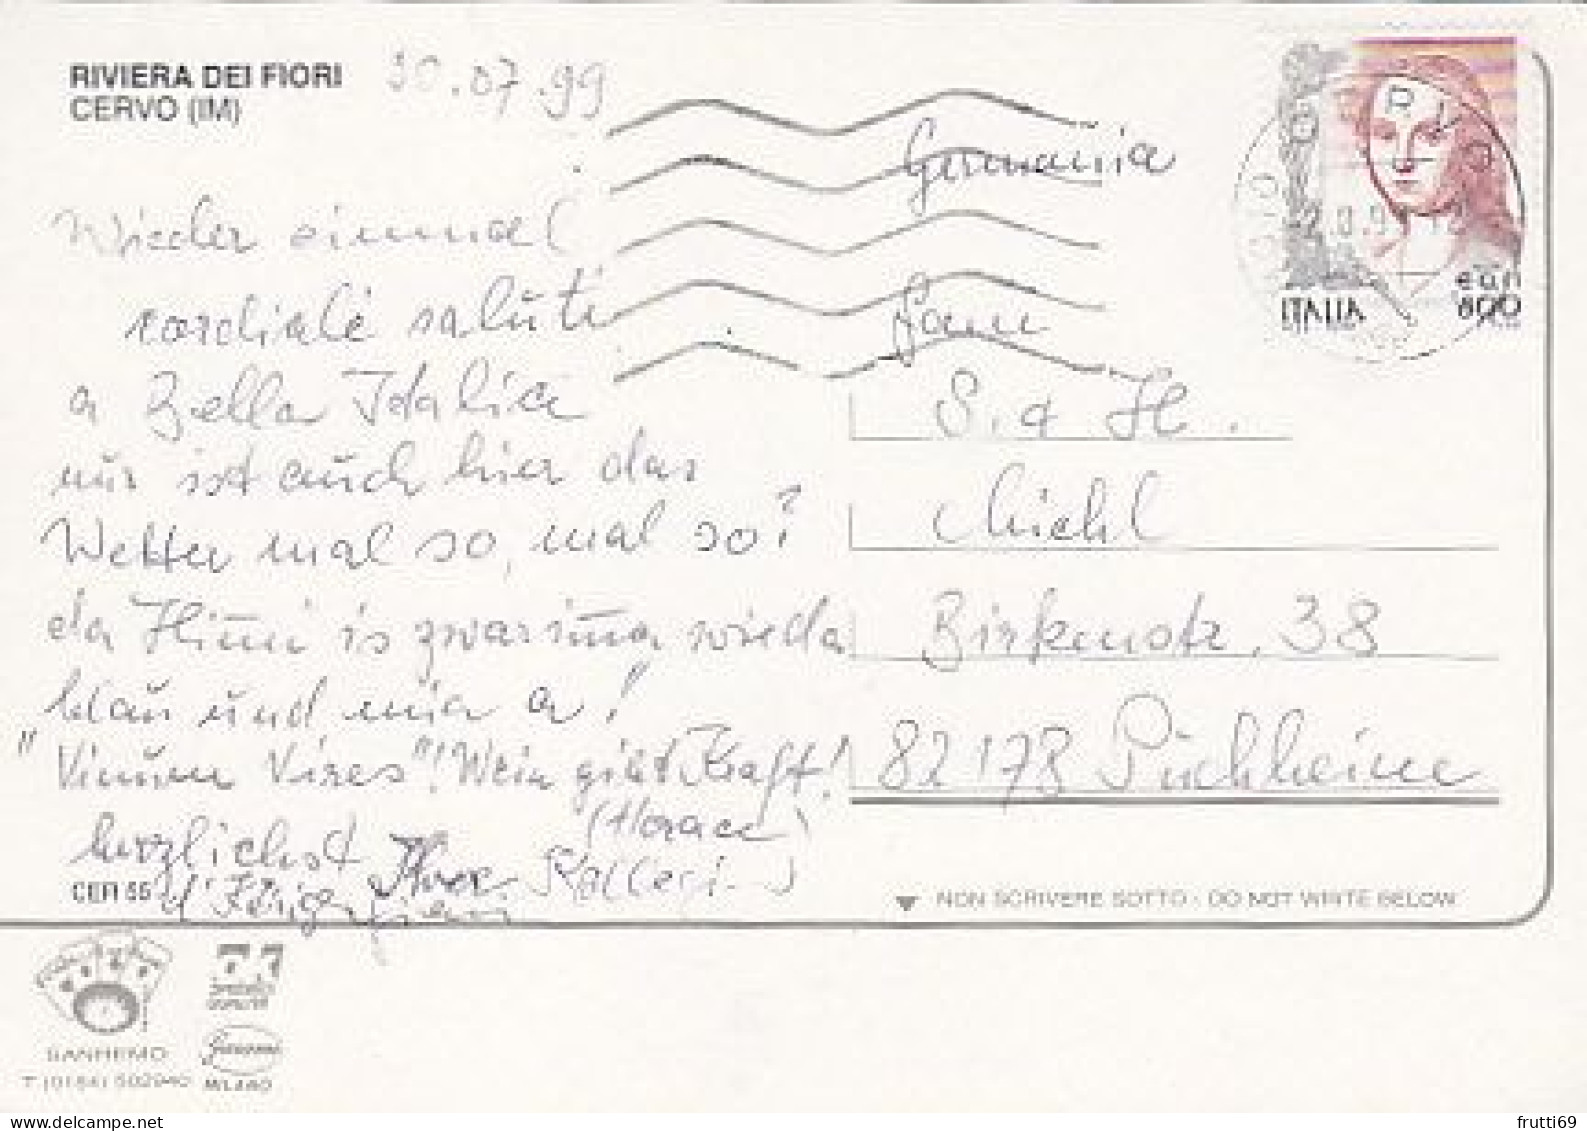 RIVIERA DEI FIORI
CERVO (IM)
30.07.99
Wieder einmal
cordiale saluti
a Bella Italia
nur ist auch hier das
Wetter mal so, mal so!
da Himi is zwar imma wieda
blau und mia a!
"Vinum Vires"! Wein gibt Kraft!
(Horace)
herzlichst
CER 55
Germania
Fam
S. & H.
Michl
Birkenstr. 38
82178 Puchheim
ITALIA 800
NON SCRIVERE SOTTO - DO NOT WRITE BELOW
SANREMO
T (0184) 502940
MILANO
frutti69